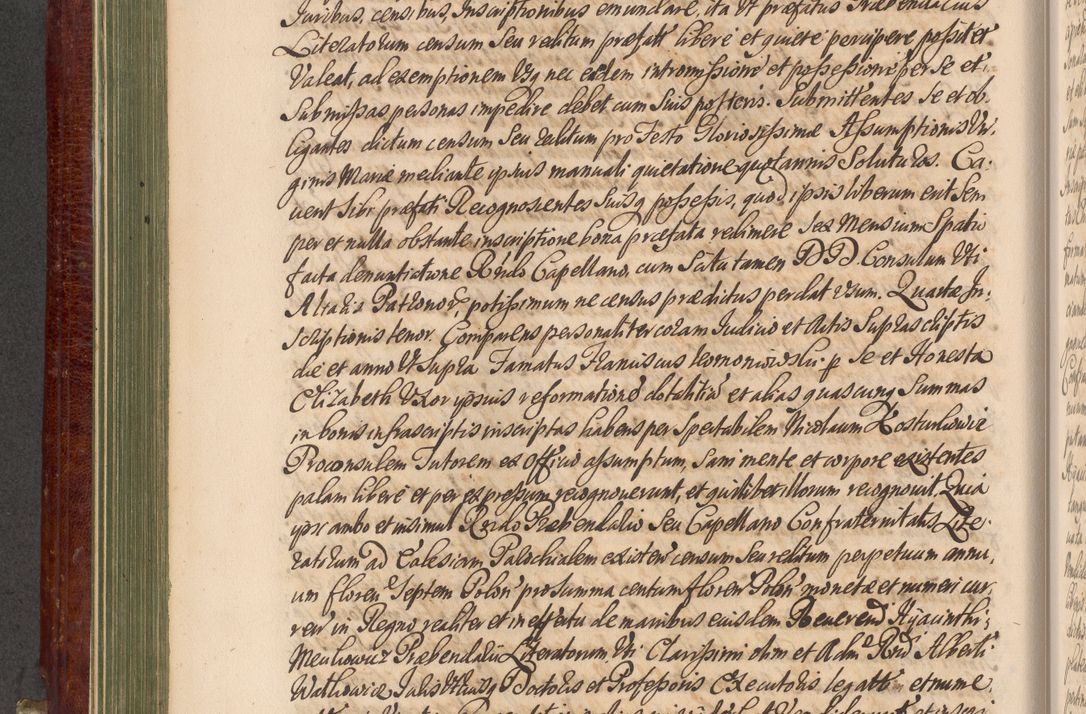 Juribus, censibus, Inscriptionibus emundare, ita Vt præfatus Præbendarius
Literatorum censum Seu reditum præfatt' liberè et quietè percipere possit et
Valeat, ad exemptionem Vsq nec eadem intromissione et possessione per se et
Submissas personas impedire debet cum suis posteris. Submittentes Se et ob-
ligantes dictum censum Seu reditum pro Festo Gloriosissimæ Assumptionis Vir-
ginis Mariæ mediante ipsius manuali quietatione quotannis Soluturos. Ca-
uent Sibi præfati Recognoscentes Suisq possessis, quod ipsis liberum erit Sem
per et nulla obstante inscriptione bona præfata redimere Sex Mensium Spatio
facta denuntiatione Rndo Capellano, cum Scitu tamen DD. Consulum Vti
Altaris Patronor, potissimum ne census prædictus perdat vsum. Quartæ In-
scriptionis tenor. Comparens personaliter coram Iudicio et Actis Suprascriptis
die et anno Vt Supra Famatus Franciscus p Se et Honesta
Elizabeth Vxor ipsius reformatione dotalitia et alias quascunq Summas
in bonis infrascriptis inscriptas habens per Spectabilem Nicolaum Kosturkowic
Proconsulem Tutorem ex Officio assumptum, Sani mente et corpore existentes
palam liberè et per expressum recognouerunt, et quilibet illorum recognouit. Quia
ipsi ambo et insimul Rndo Præbendario Seu Capellano Confraternitatis Lite-
ratorum ad Ecclesiam Parochialem existen' censum Seu reditum perpetuum annu-
um floren' Septem Polon' pro summa centum floren' Polon' monetæ et numeri cur-
ren' in Regno realiter et in effectu de manibus eiusdem Reuerend' Hyacinthi
Præbendarii Literatorum Vti Clarissimi olim et Adm' Rnd' Alberti
Iuris Vtriusq Doctoris et Professoris Executoris legatt' et nume-